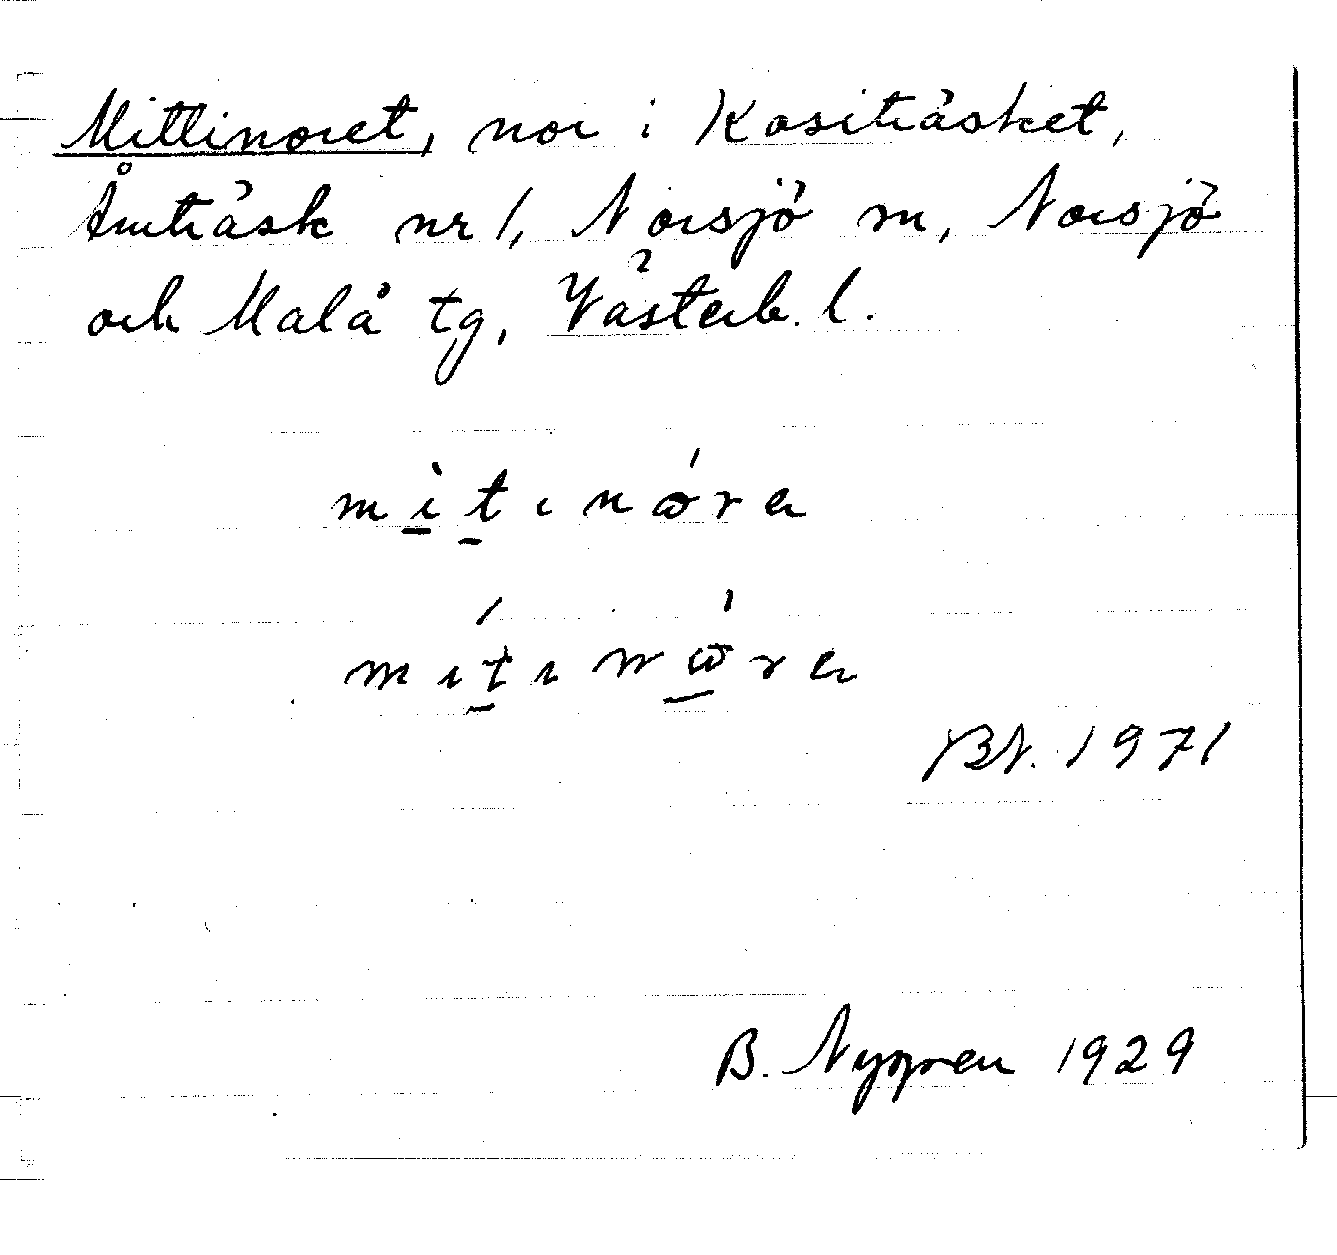 Mittinoret, nor i Kositräsket,
Åmträsk nr 1, Norsjö sn, Norsjö
och Malå tg, Västerb. l.
mìtınɷ́rɐ
mítınɷ́rɐ
BN. 1971
B. Nygren 1929